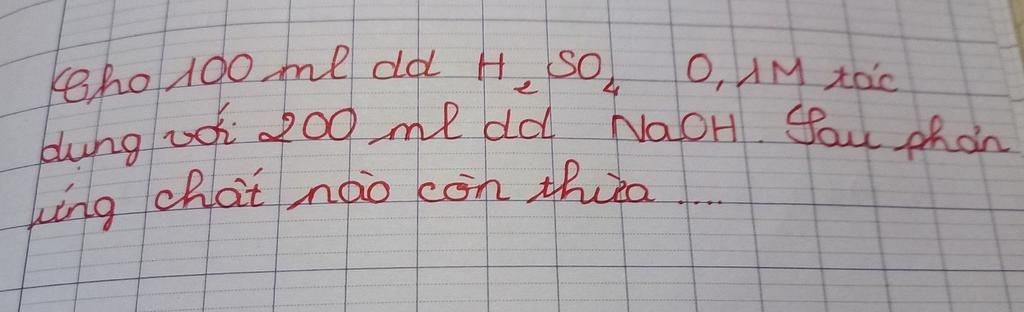 Cho 100 ml dd H₂SO₄ 0,1M tác
dụng với 200 ml dd NaOH. Sau phản
ứng chất nào còn thừa ....